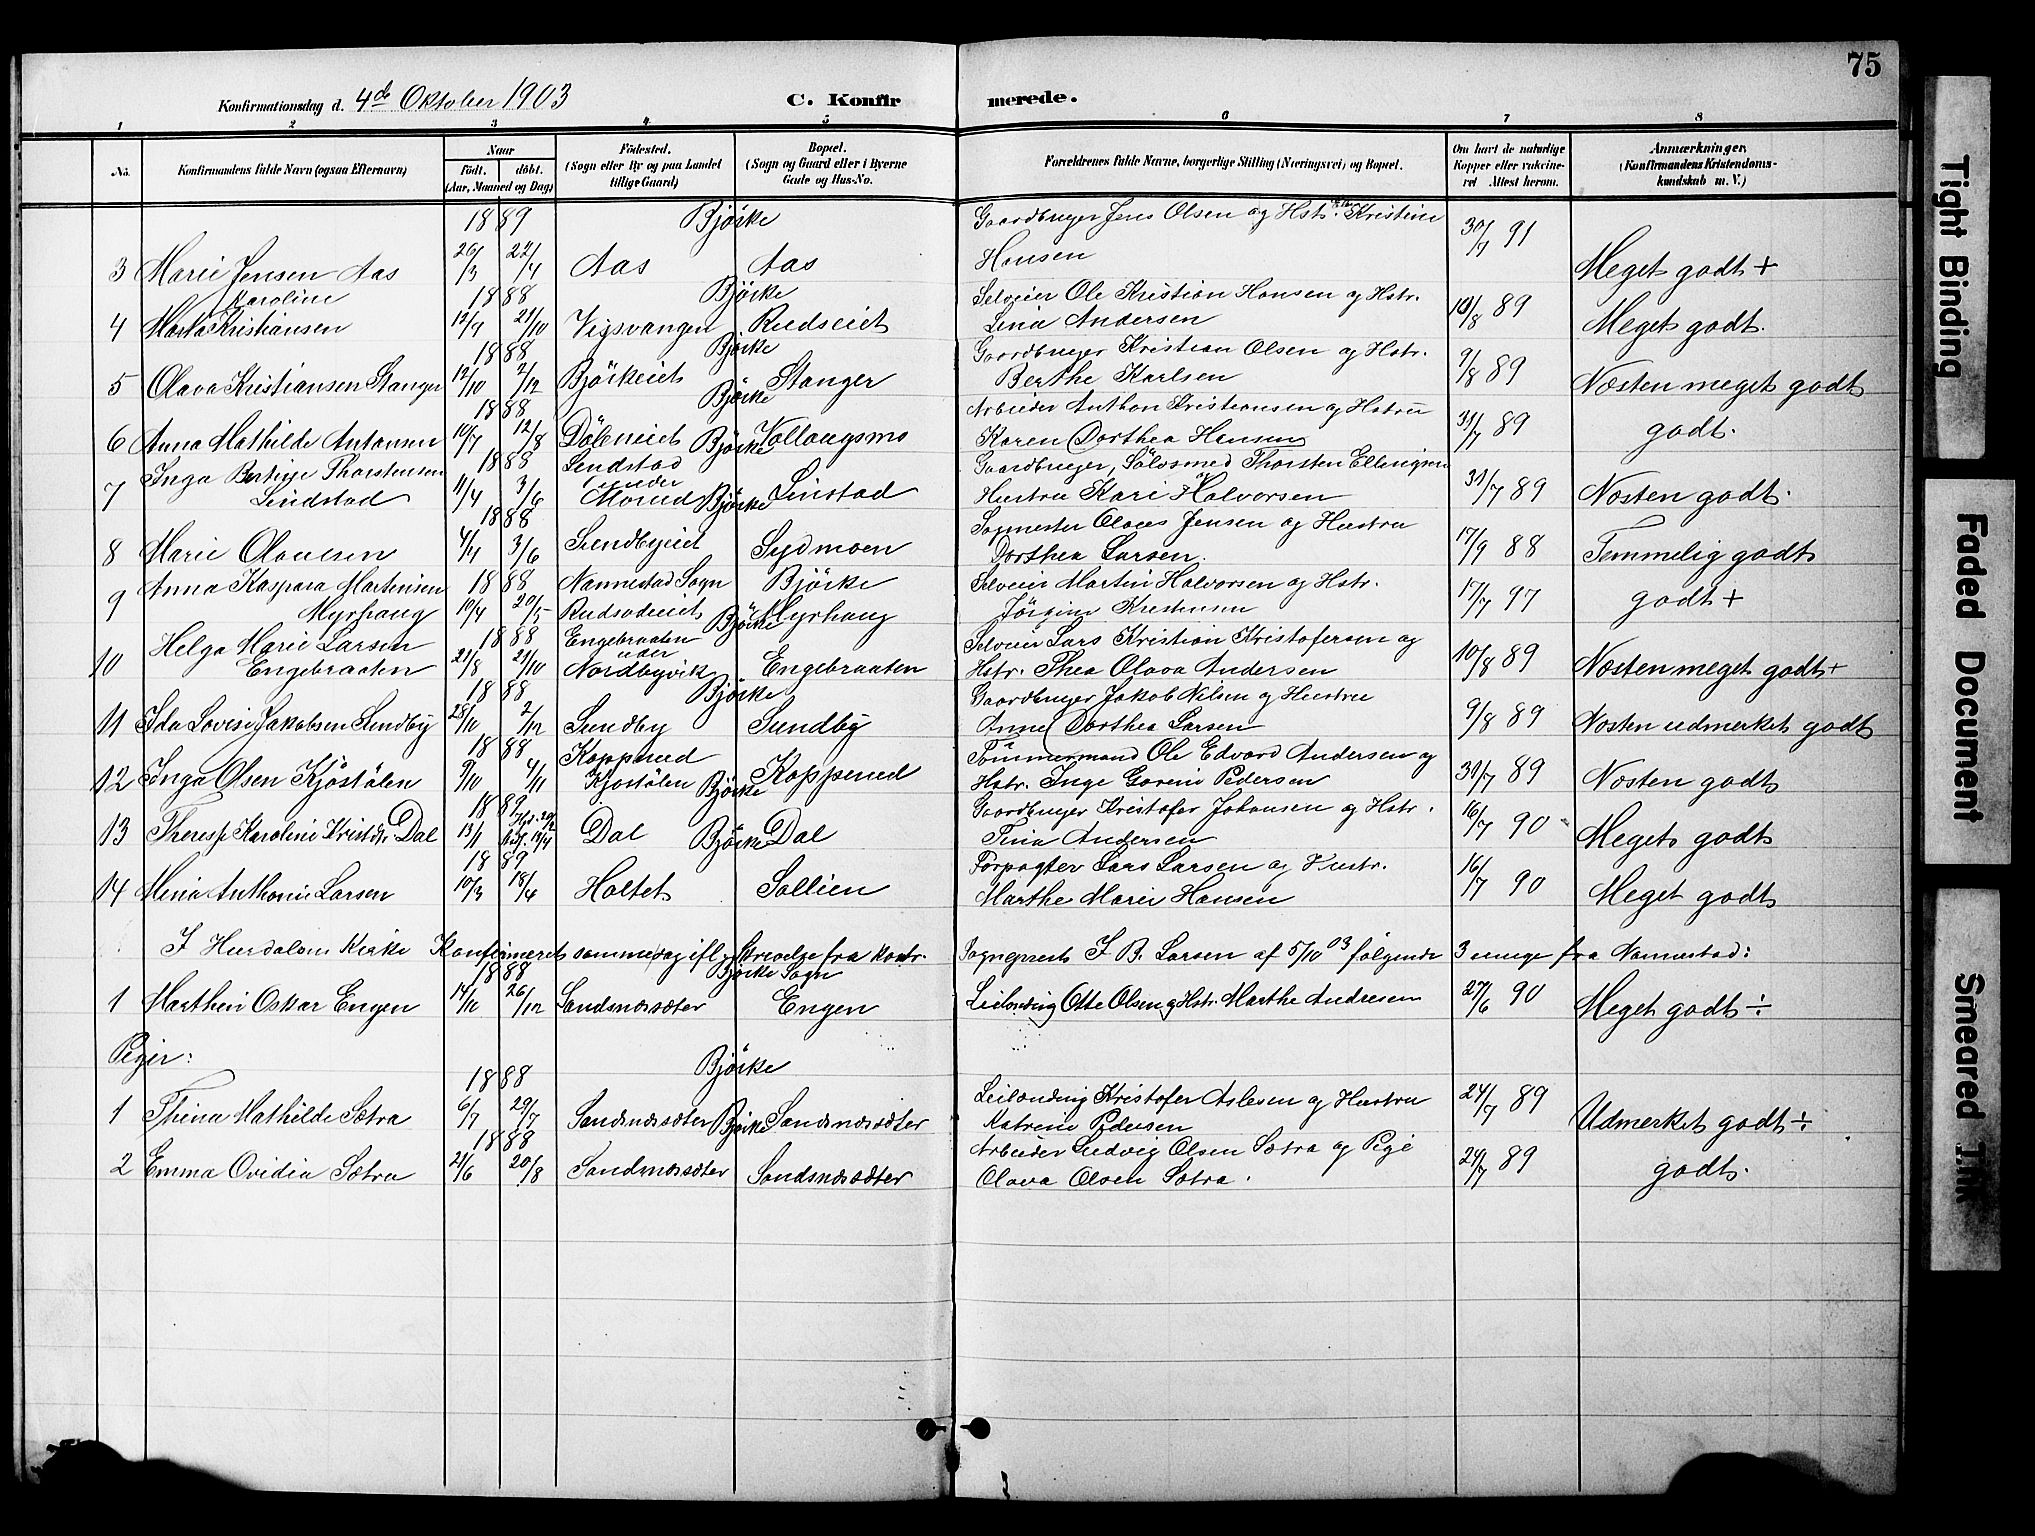 75
Konfirmationsdag d. 4de Oktober 1903 C. Konfirmerede.
1 2 3 4 5 6 7 8
No. Konfirmandens fulde Navn (ogsaa Efternavn) Naar Födt. döbt. (Aar, Maaned og Dag) Födested. (Sogn eller By og paa Landet tillige Gaard) Bopæl. (Sogn og Gaard eller i Byerne Gade og Hus-No. Forældrenes fulde Navne, borgerlige Stilling (Næringsvei) og Bopæl. Om havt de naturlige Kopper eller vakcineret Attest herom. Anmærkninger. (Konfirmandens Kristendomskundskab m. V.)
1889 Björke Gaardbruger Jens Olsen og Hstr. Kristine
3 Marie Jensen Aas 26/3 22/4 Aas Aas Hansen 30/7 91 Meget godt +
Karoline 1888 Björke Selveier Ole Kristian Hansen og Hstr.
4 Marta Kristiansen 12/9 21/10 Vigsvangen Rudseiet Lina Andersen 10/8 89 Meget godt.
1888 Björke Gaardbruger Kristian Olsen og Hstr.
5 Olava Kristiansen Stanger 12/10 2/12 Björkeiet Stanger Berthe Karlsen 9/8 89 Næsten meget godt
1888 Björke Arbeider Anthon Kristiansen og Hstru
6 Anna Mathilde Antonsen 10/7 12/8 Döleneiet Vollaugsmo Karen Dorthea Hansen 31/7 89 godt.
Inga Bertine Thorstensen 1888 Lendstad Björke Gaardbruger, Sölvsmed Thorsten Ellingsen
7 Lindstad 11/4 3/6 under Morud Linstad Hustru Kari Halvorsen 31/7 89 Næsten godt.
1888 Björke Sagmester Olaves Jensen og Hustru
8 Marie Olavesen 4/4 3/6 Sundbyeiet Sydmoen Dorthea Larsen. 17/9 88 Temmelig godt
Anna Kaspara Martinsen 1888 Nannestad Sogn Björke Selveier Martin Halvorsen og Hstr.
9 Myrhaug 10/4 20/5 Rudsodeiet Myrhaug Jörgine Kristensen 17/7 97 godt +
Helga Marie Larsen 1888 Engebraaten Björke Selveier Lars Kristian Kristofersen og
10 Engebraaten 21/8 21/10 under Nordbyvik Engebraaten Hstr. Thea Olava Andersen 10/8 89 Næsten meget godt +
1888 Björke Gaardbruger Jakob Nilsen og Hustru
11 Ida Lovise Jakobsen Sundby 28/10 2/12 Sundby Sundby Anne Dorthea Larsen 9/8 89 Næsten udmerket godt
1888 Kopperud Tömmermand Ole Edvard Andersen og
12 Inga Olsen Kjöstölen 9/10 4/11 Kjöstölen Kopperud Hstr. Inge Gorine Pedersen 31/7 89 Næsten godt
1889 Björke Gaardbruger Kristofer Johansen og Hstr.
13 Therese Karoline Kristofr. Dal 13/1 Dal Dal Tina Andersen 16/7 90 Meget godt
1889 Björke Forpagter Lars Larsen og Hustr.
14 Mina Anthonie Larsen 10/3 18/4 Holtet Sollien Marthe Marie Hansen 16/7 90 Meget godt
I Hurdalens Kirke Konfirmeret samme dag ifl. skrivelse fra konst. Sogneprest J. B. Larsen af 5/10 03 følgende 3 unge fra Nannestad:
1888 Björke Sogn
1 Marthin Oskar Engen 14/10 26/12 Sandsnæssæter Engen Leilænding Otte Olsen og Hstr. Marthe Andresen 27/6 90 Meget godt ÷
Piger:
1888 Björke Leilænding Kristofer Aslesen og Hustru
1 Thina Mathilde Sætra 6/7 29/7 Sandsnæssæter Sandsnæssæter Katrine Pedersen 24/7 89 Udmerket godt ÷
1888 Björke Arbeider Ludvig Olsen Sætra og Pige
2 Emma Ovidia Sætra 21/6 20/8 Sandsnæssæter Sandsnæssæter Olava Olsen Sætra. 24/7 89 godt.
Tight Binding
Faded Document
Smeared Ink